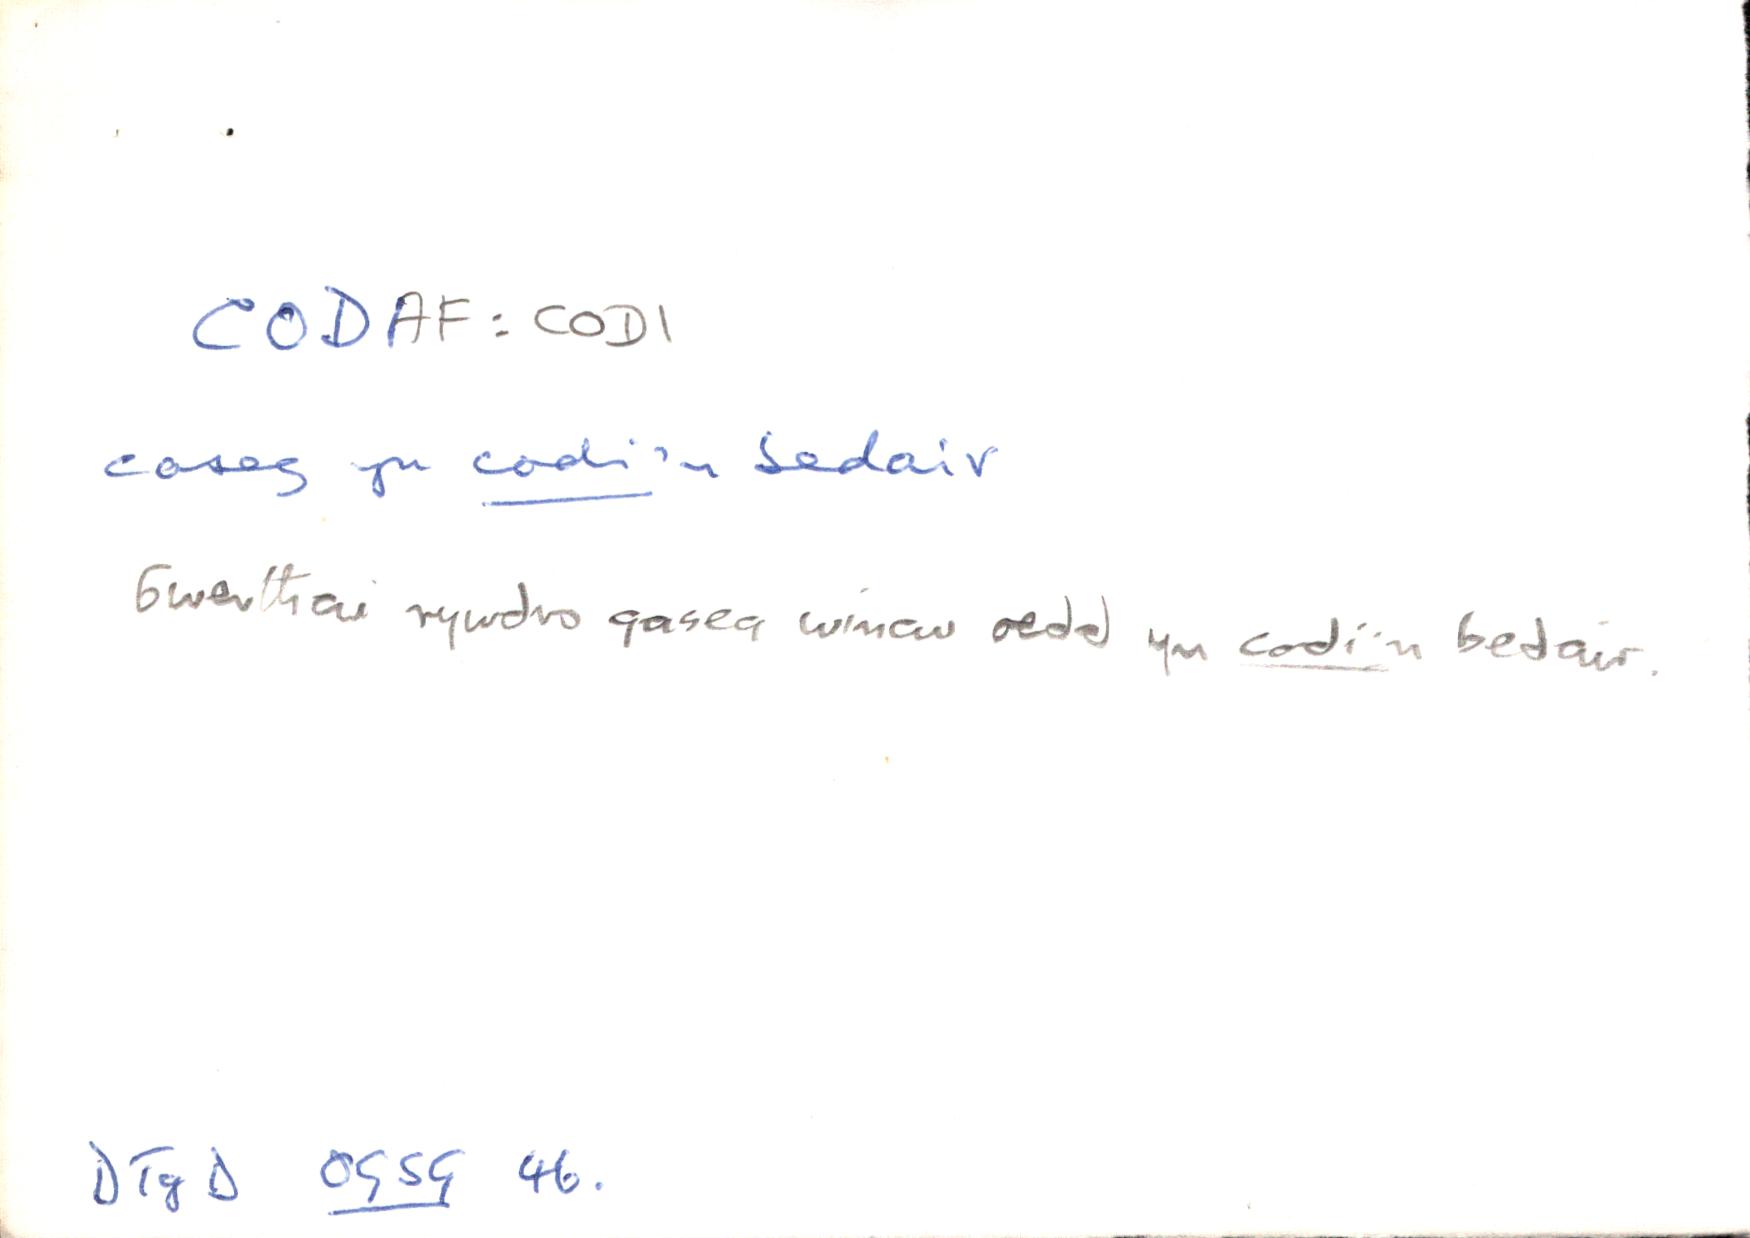 CODAF: CODI
caseg yn codi'n bedair
Gwerthai rywdro gaseg winau oedd yn codi'n bedair.
DTgD OGSG 46.